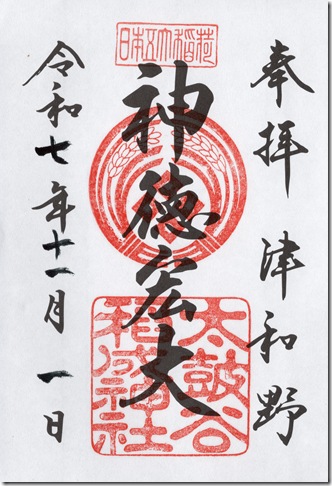 奉拝 津和野
日本五大稲荷
神徳宏大
太鼓谷
稲成神社
令和七年十一月一日